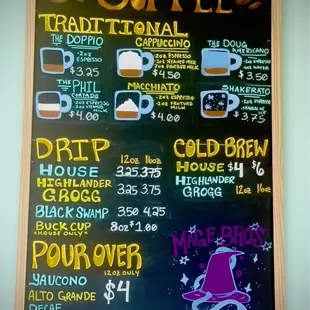 COFFEE
TRADITIONAL
THE DOPPIO
-2oz ESPRESSO
$3.25
CAPPUCCINO
-2oz ESPRESSO
-2oz STEAMED MILK
-2oz FOAMED MILK
$4.50
THE DOUG
AMERICANO
-2oz ESPRESSO
$3.50
THE PHIL
CORTADO
-2oz ESPRESSO
-2oz STEAMED MILK
$4.00
MACCHIATO
-2oz ESPRESSO
MILK
$4.00
SHAKERATO
-2oz ESPRESSO
$3.75
DRIP
12oz 16oz
HOUSE 3.25 3.75
HIGHLANDER
GROGG 3.25 3.75
BLACK SWAMP 3.50 4.25
BUCK CUP 8oz $1.00
*HOUSE ONLY*
COLD BREW
HOUSE $4 $6
HIGHLANDER
GROGG 12oz 16oz
POUR OVER
12oz ONLY
YAUCONO
ALTO GRANDE
DECAF
$4
MAGE BROS.